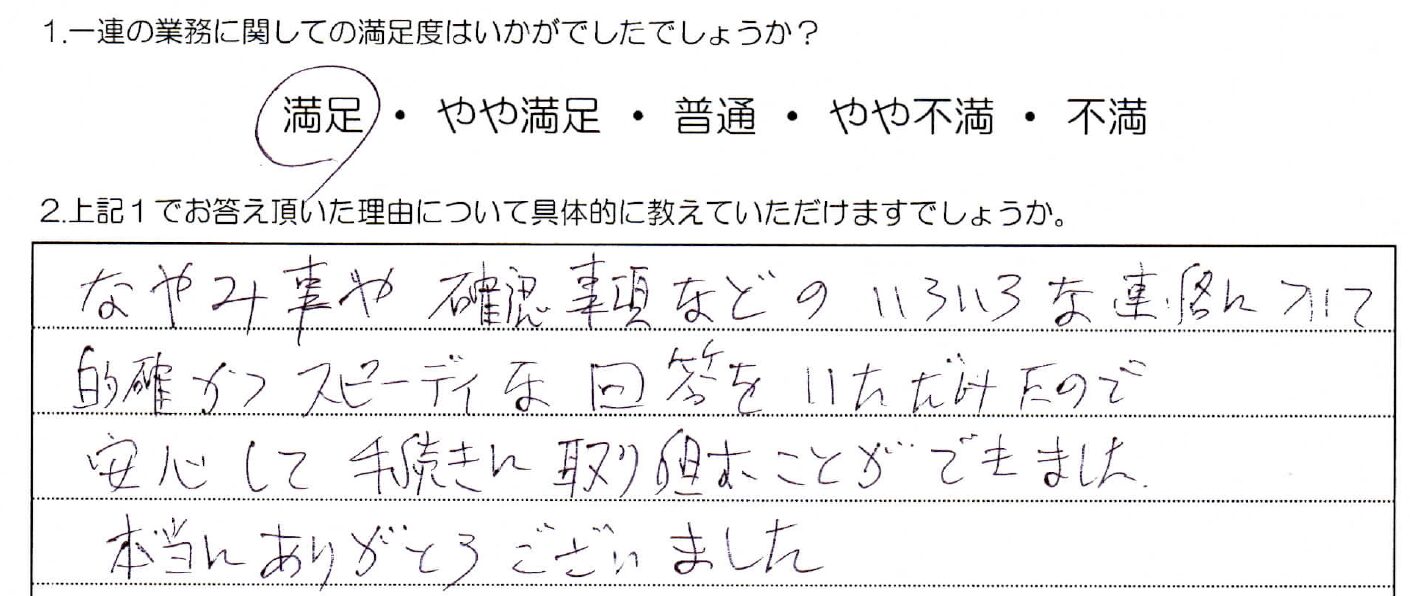 1.一連の業務に関しての満足度はいかがでしたでしょうか？
満足 ・ やや満足 ・ 普通 ・ やや不満 ・ 不満
2.上記１でお答え頂いた理由について具体的に教えていただけますでしょうか。
なやみ事や 確認事項などの いろいろな連絡に対して
的確かつ スピーディな 回答を いただけたので
安心して 手続きに 取り組むことができました.
本当にありがとうございました